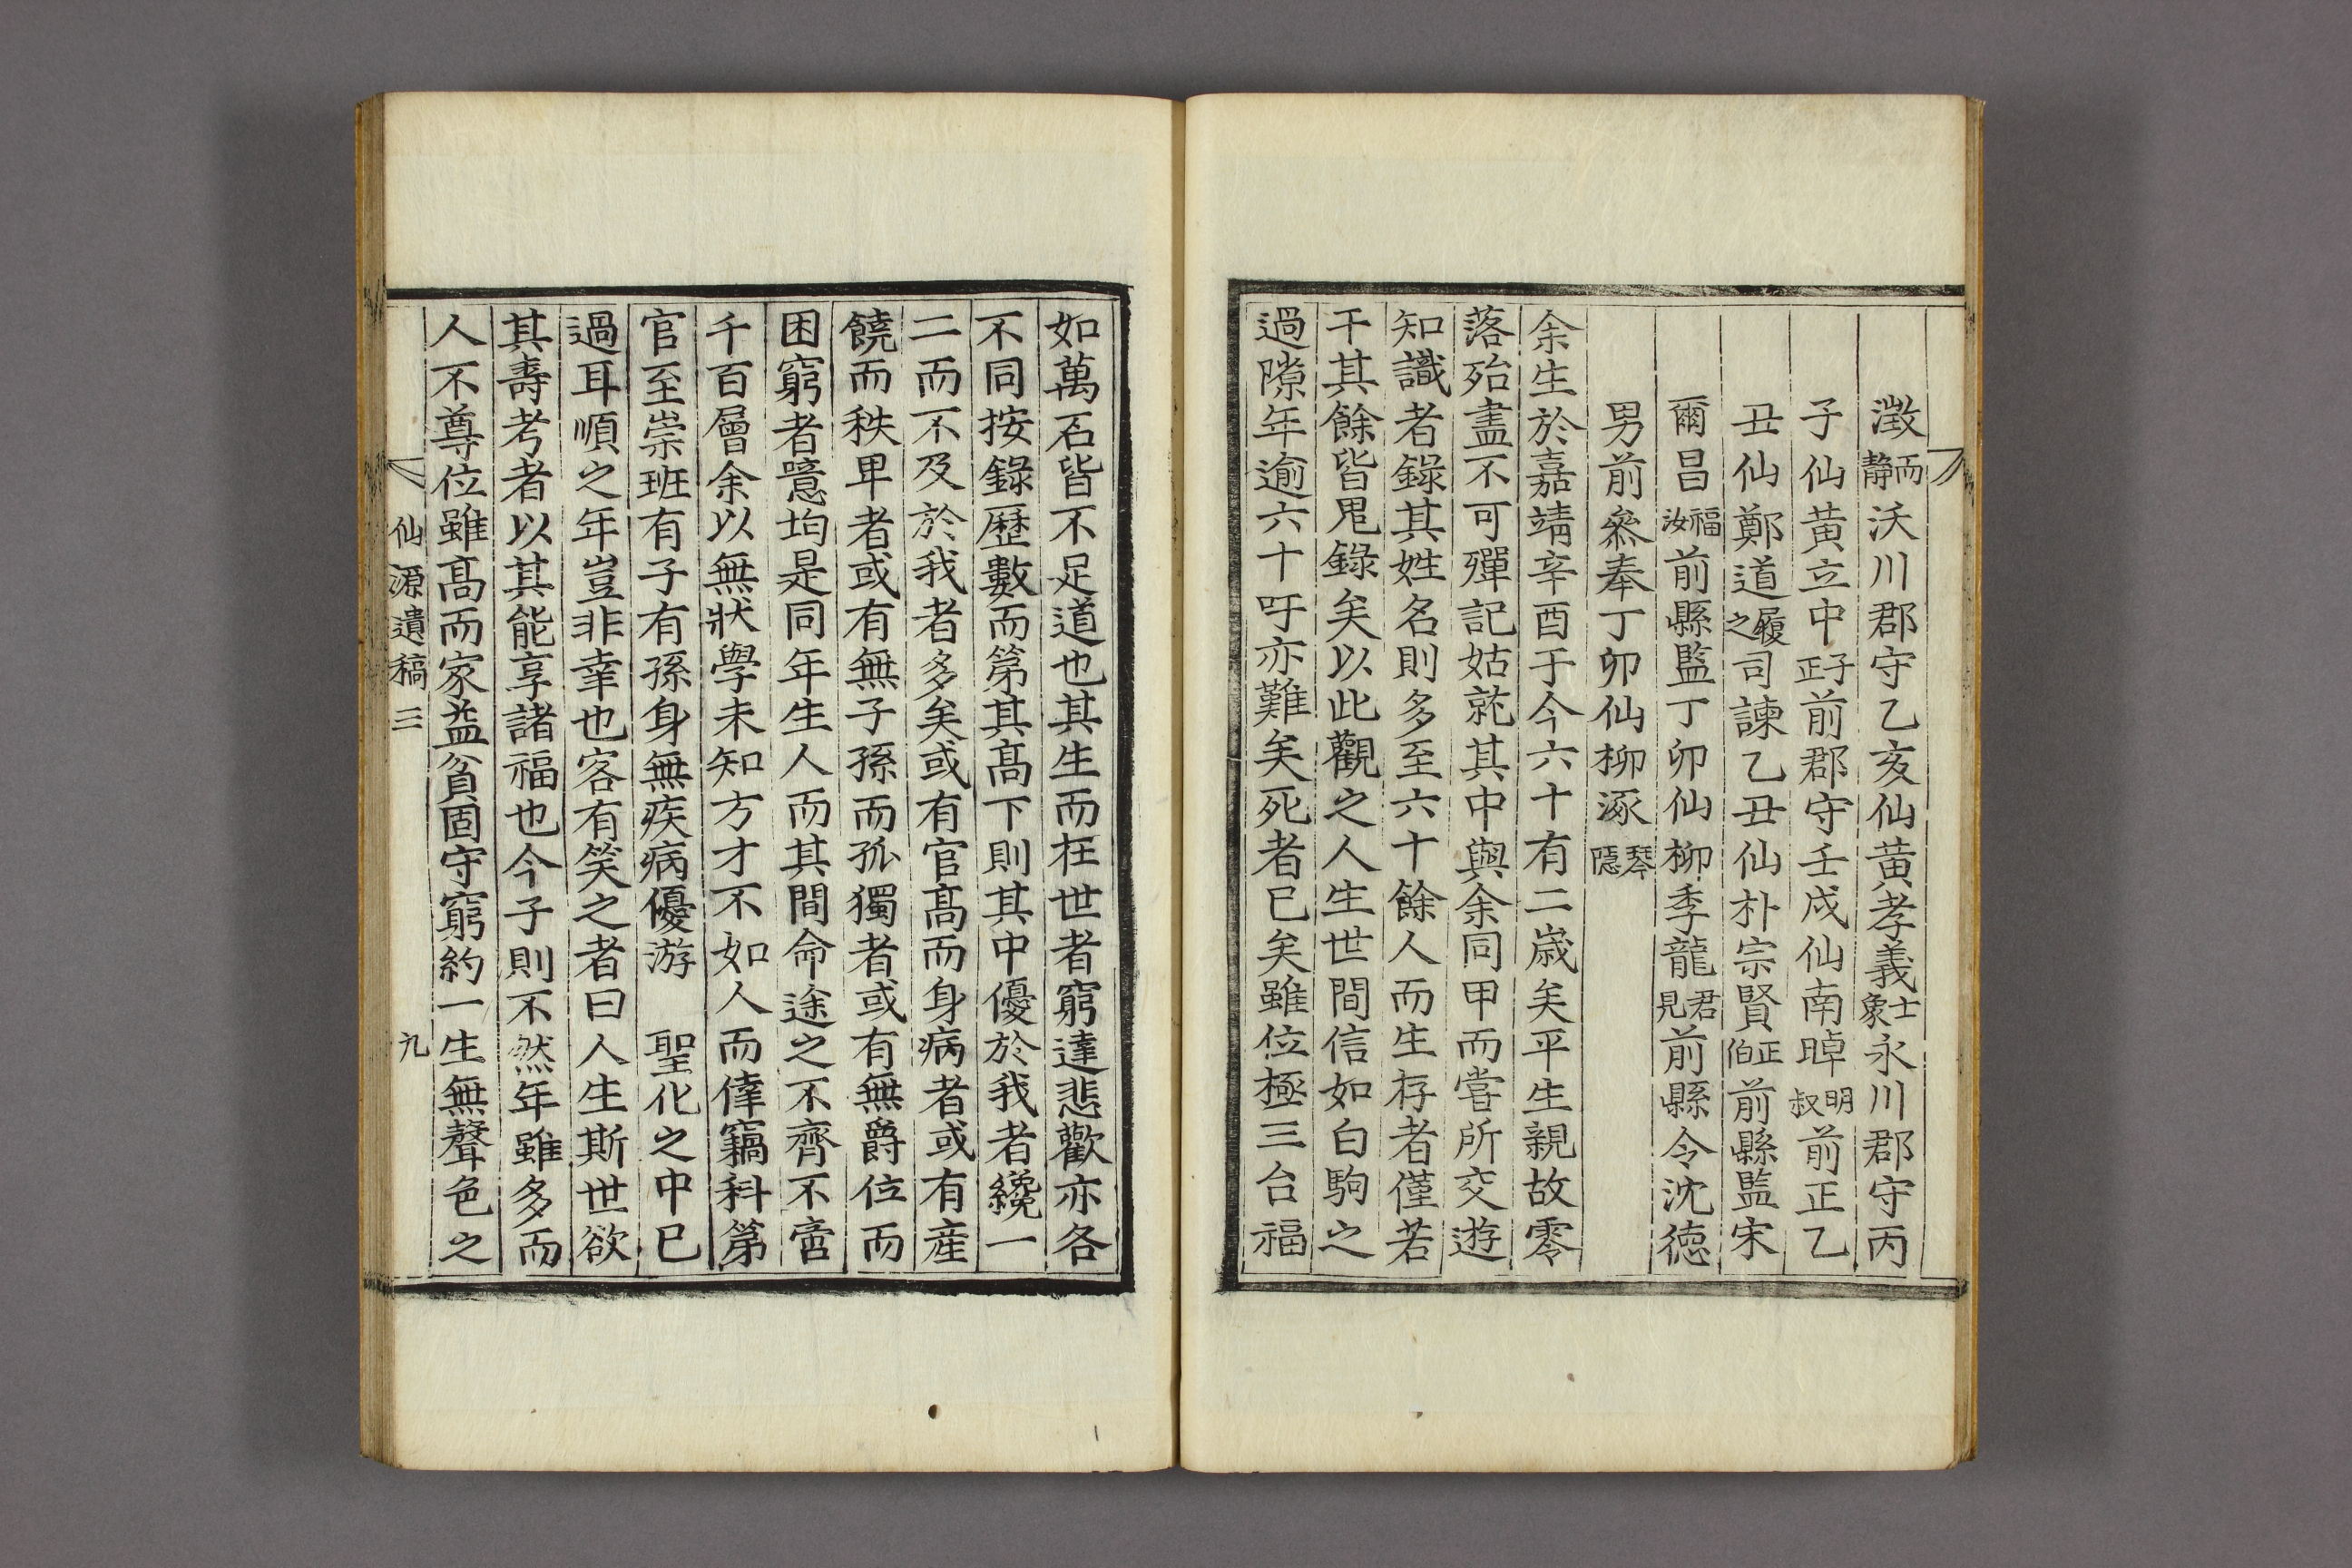 澂而靜沃川郡守乙亥仙黃孝義士彖永川郡守丙
子仙黃立中正子前郡守壬戌仙南晫明叔前正乙
丑仙鄭道履之司諫乙丑仙朴宗賢正伯前縣監宋
爾昌福汝前縣監丁卯仙柳季龍君見前縣令沈德
男前叅奉丁卯仙柳涿琴隱
余生於嘉靖辛酉于今六十有二歲矣平生親故零
落殆盡不可殫記姑就其中與余同甲而嘗所交遊
知識者錄其姓名則多至六十餘人而生存者僅若
干其餘皆鬼錄矣以此觀之人生世間信如白駒之
過隙年逾六十吁亦難矣死者已矣雖位極三台福
如萬石皆不足道也其生而在世者窮達悲歡亦各
不同按錄歷數而第其高下則其中優於我者纔一
二而不及於我者多矣或有官高而身病者或有産
饒而秩卑者或有無子孫而孤獨者或有無爵位而
困窮者噫均是同年生人而其間命途之不齊不啻
千百層余以無狀學未知方才不如人而倖竊科第
官至崇班有子有孫身無疾病優游　聖化之中已
過耳順之年豈非幸也客有笑之者曰人生斯世欲
其壽考者以其能享諸福也今子則不然年雖多而
人不尊位雖高而家益貧固守窮約一生無聲色之
仙源遺稿三　九